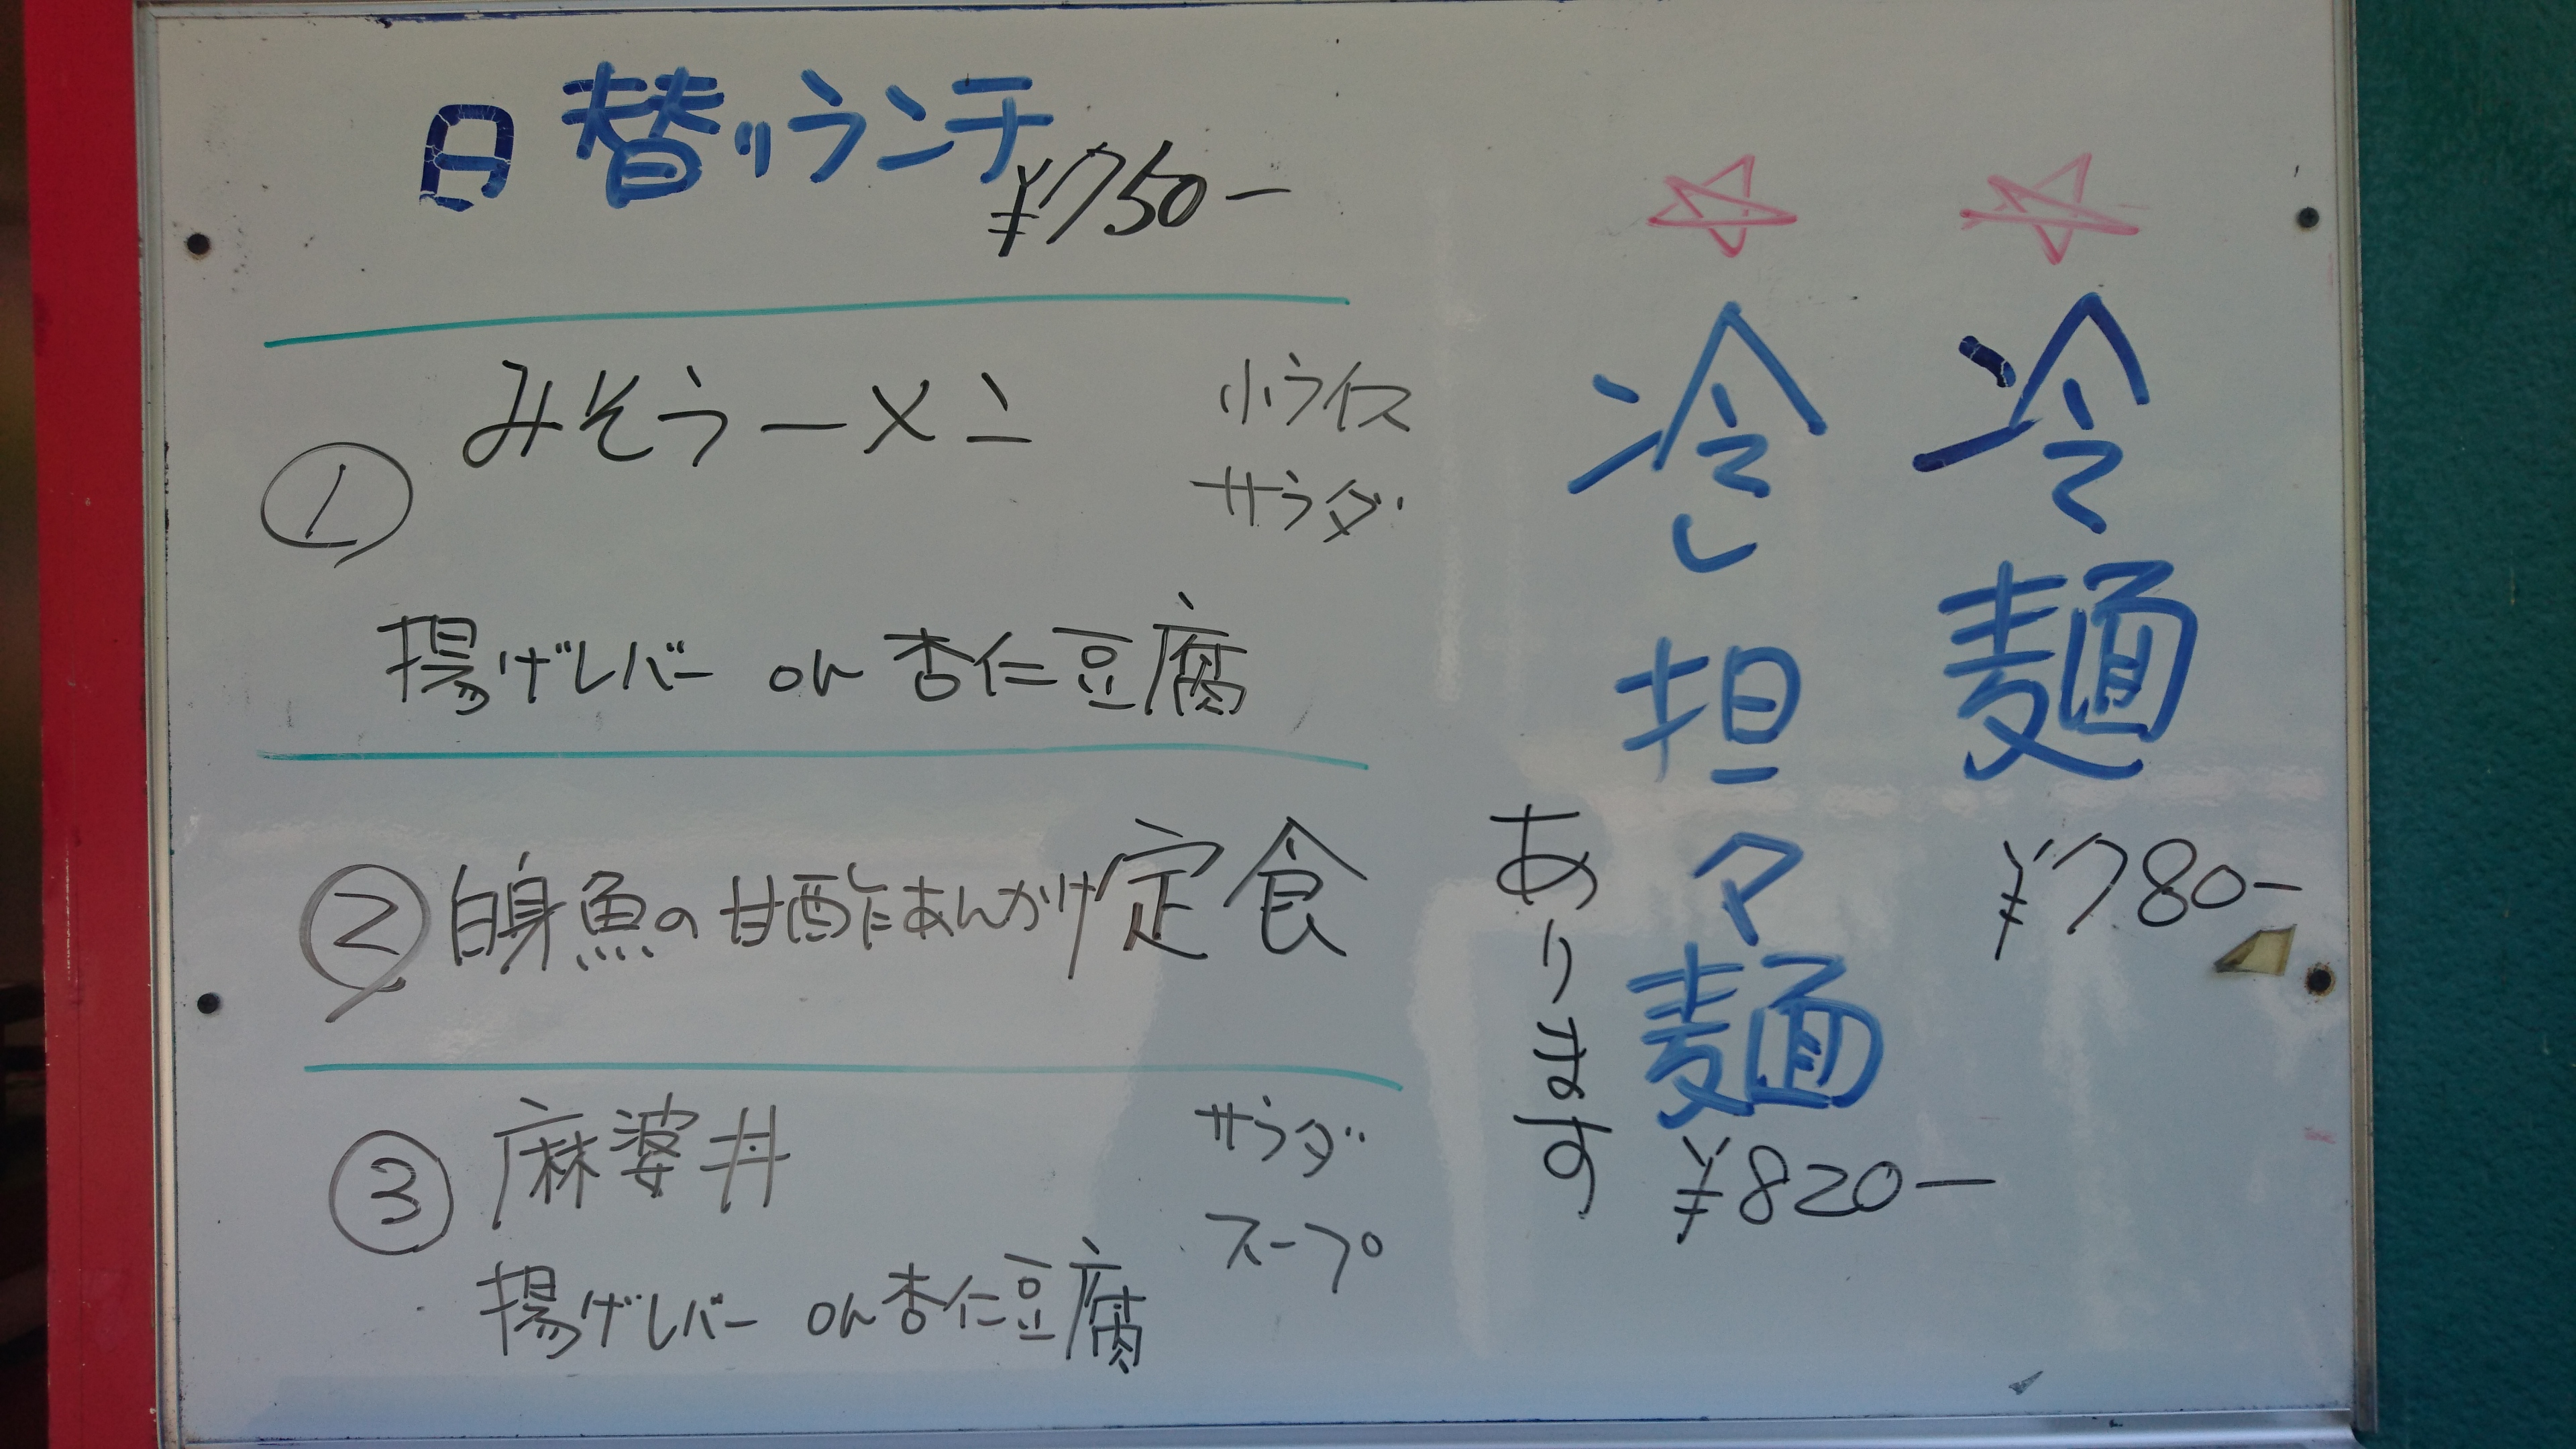 日替りランチ
¥750ー
① みそラーメン
小ライス
サラダ
揚げレバー or 杏仁豆腐
② 白身魚の甘酢あんかけ定食
③ 麻婆丼
サラダ
スープ
揚げレバー or 杏仁豆腐
☆冷麺
¥780ー
☆冷し担々麺
¥820ー
あります